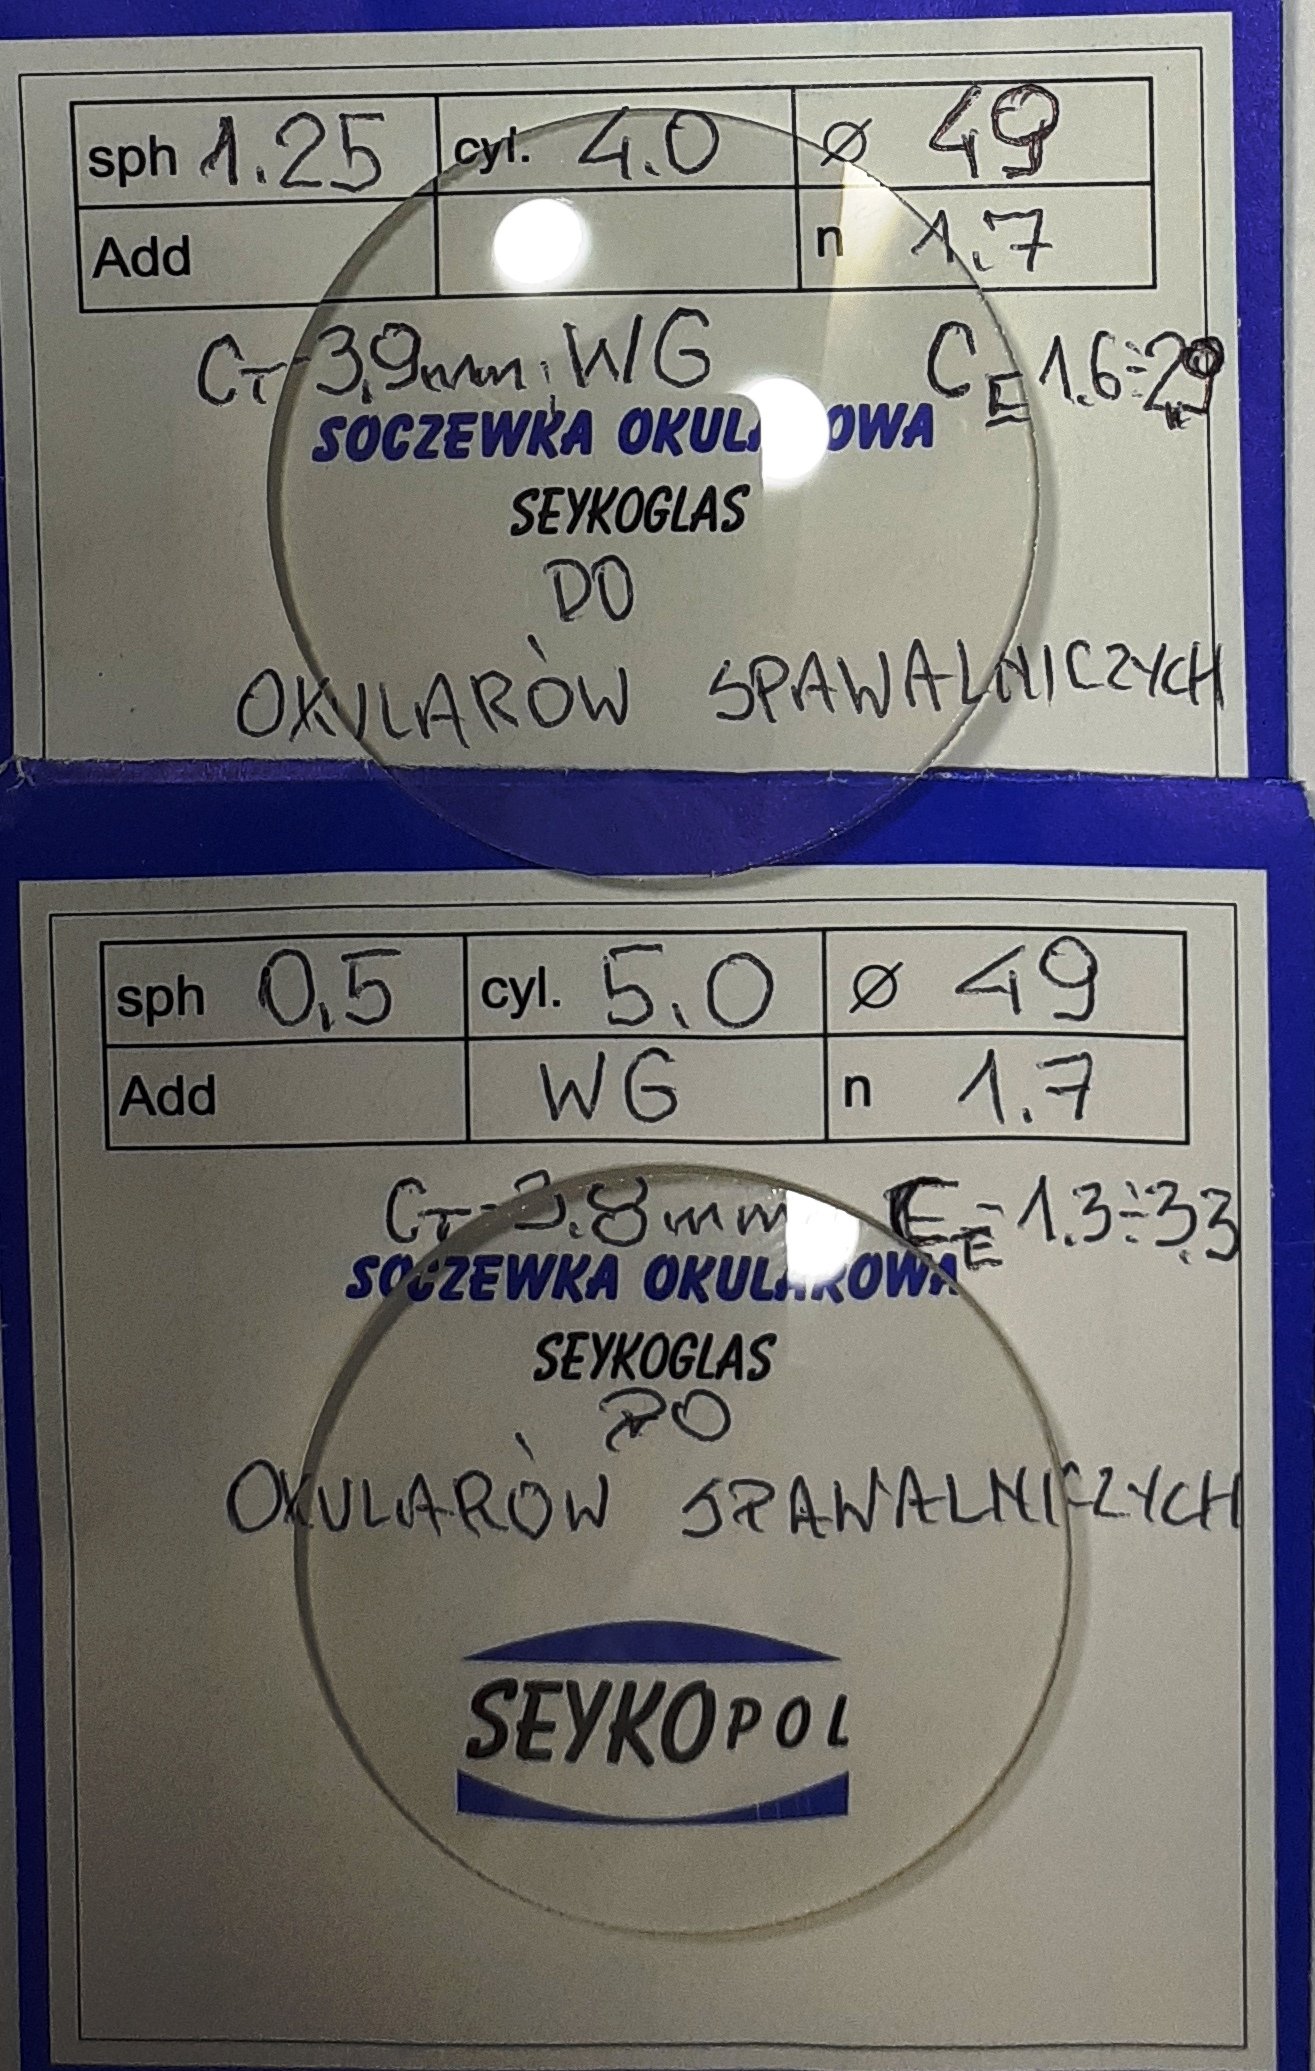 sph 1.25 cyl. 4.0 ø 49
Add n 1.7
CT-3,9mm; WG CE 1.6÷2,9
SOCZEWKA OKULAROWA
SEYKOGLAS
DO
OKULARÓW SPAWALNICZYCH
sph 0,5 cyl. 5.0 ø 49
Add WG n 1.7
CT-3.8mm EE-1.3÷3,3
SOCZEWKA OKULAROWA
SEYKOGLAS
DO
OKULARÓW SPAWALNICZYCH
SEYKOPOL